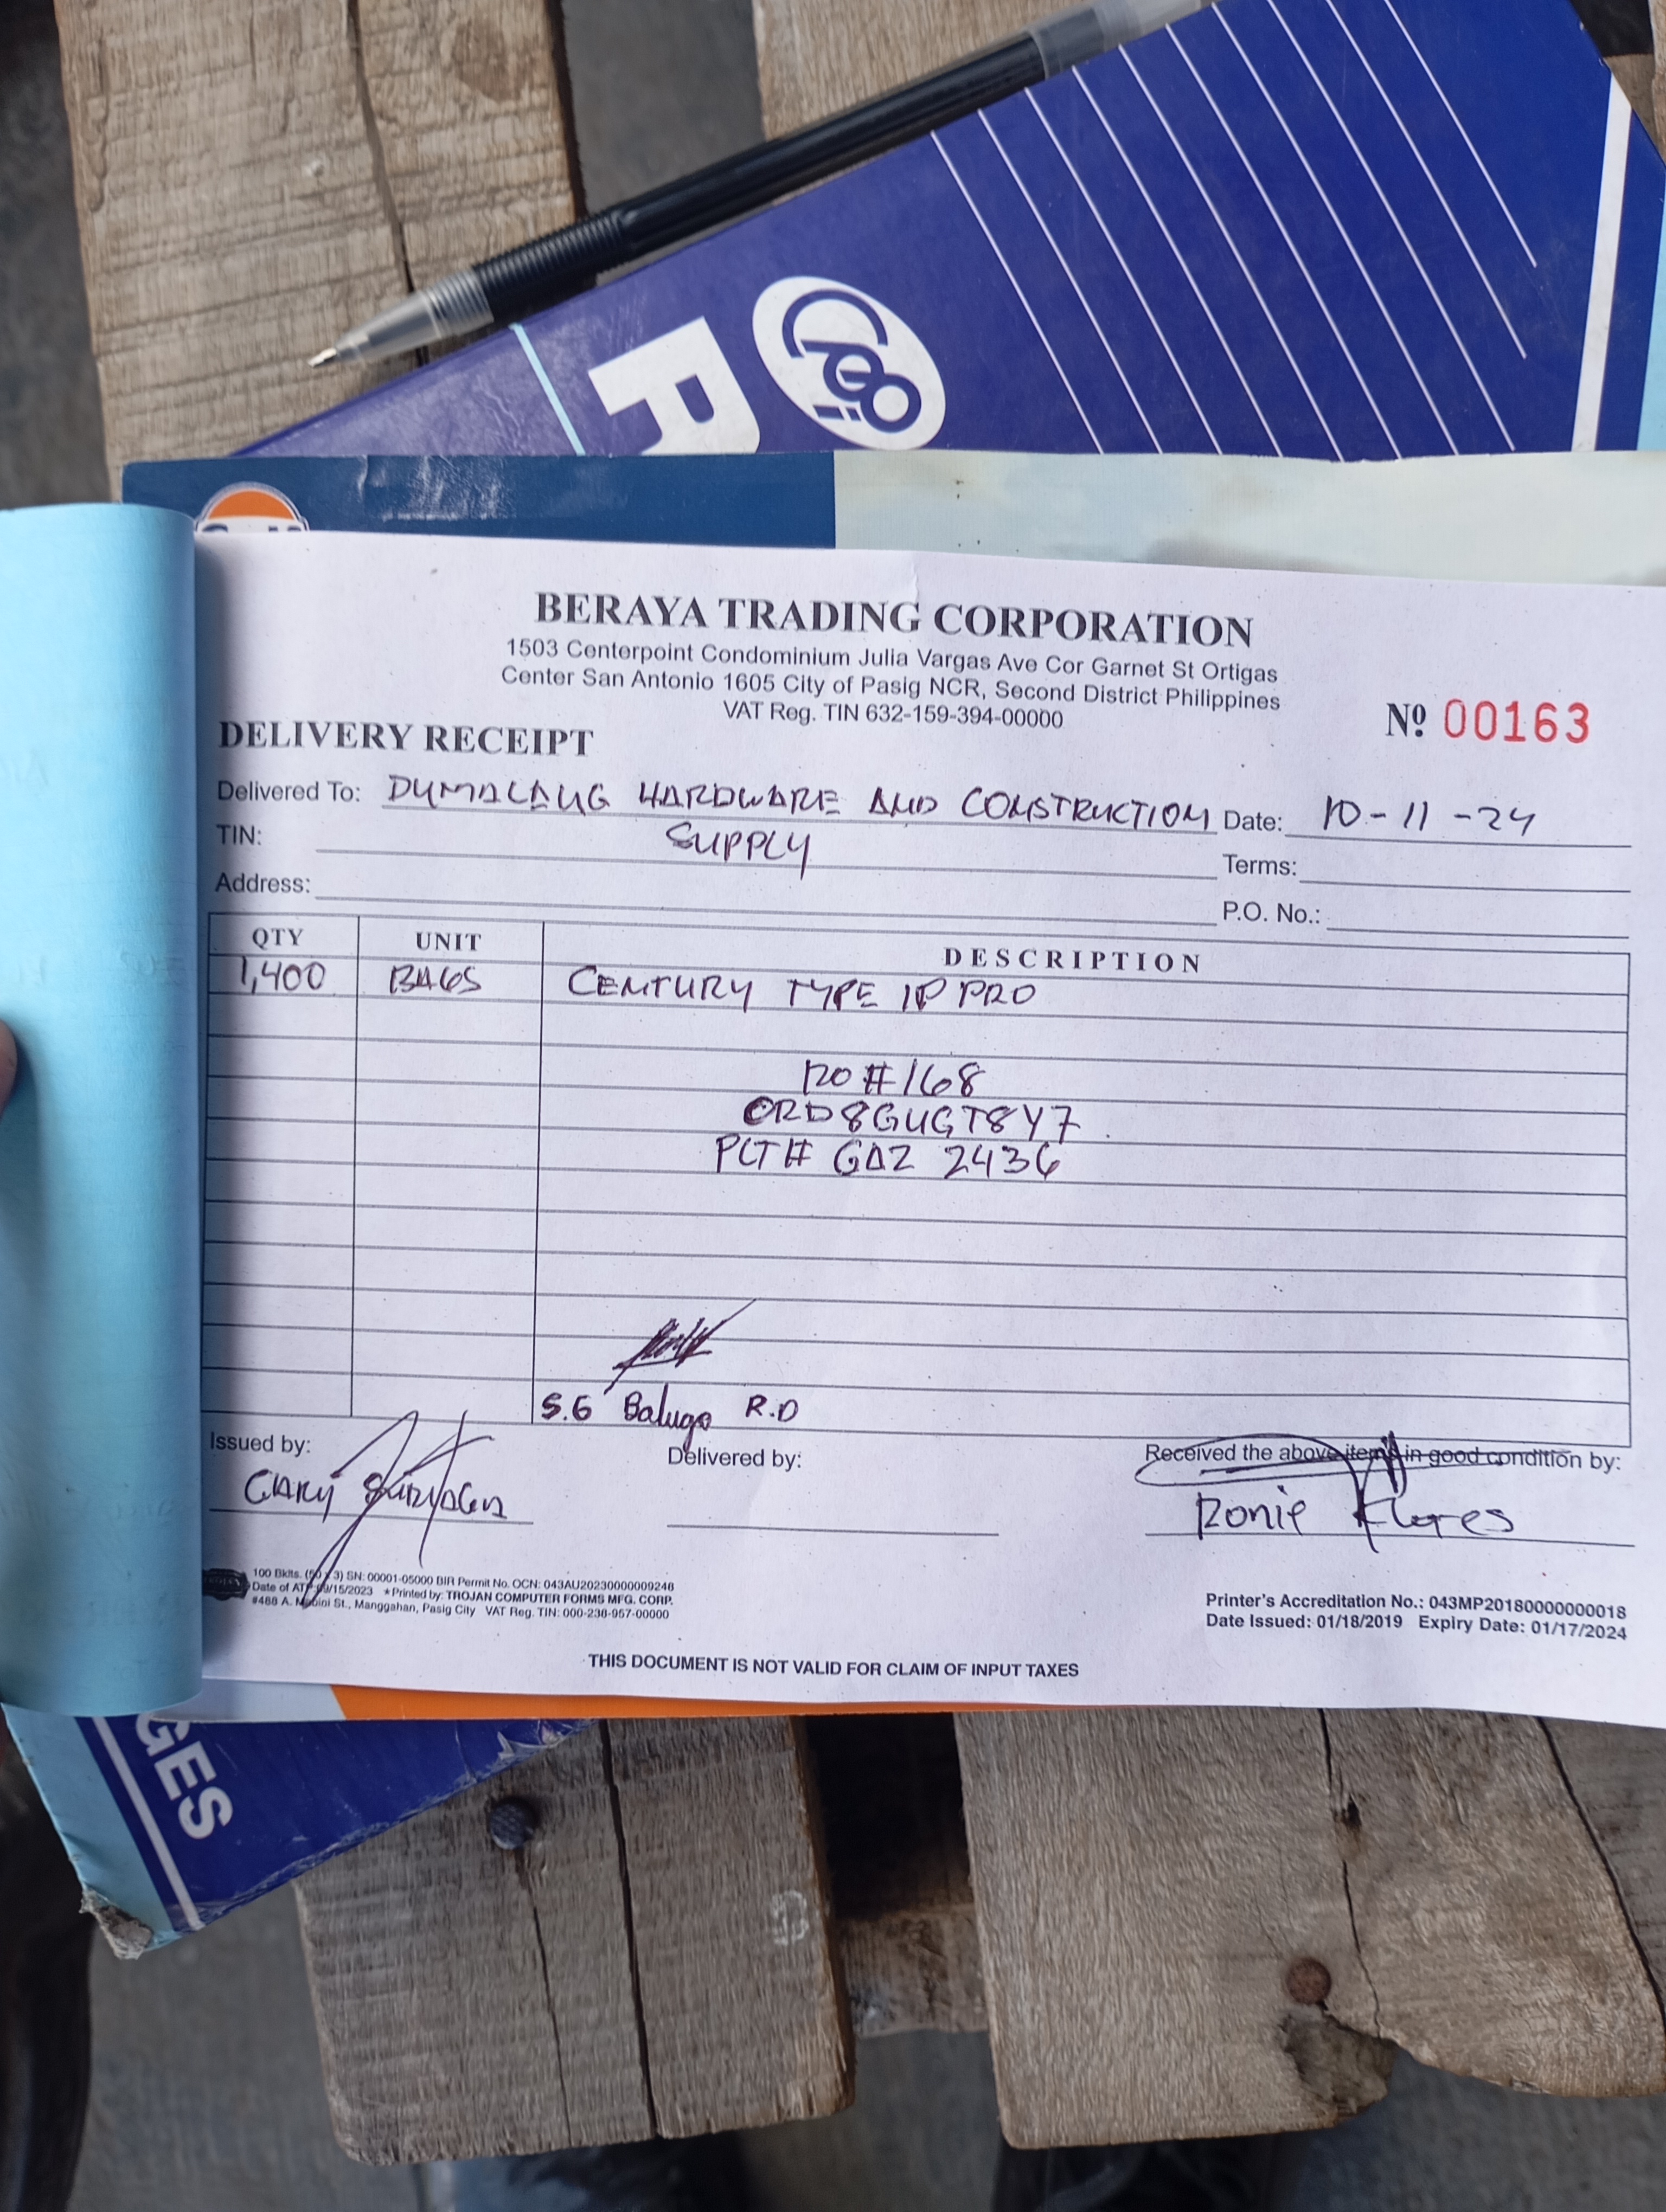 R
BERAYA TRADING CORPORATION
1503 Centerpoint Condominium Julia Vargas Ave Cor Garnet St Ortigas
Center San Antonio 1605 City of Pasig NCR, Second District Philippines
VAT Reg. TIN 632-159-394-00000
Nº 00163
DELIVERY RECEIPT
Delivered To: DUMALAUG HARDWARE AND CONSTRUCTION Date: 10-11-24
TIN: SUPPLY
Terms:
Address:
P.O. No.:
QTY UNIT DESCRIPTION
1,400 BAGS CENTURY TYPE 1P PRO
RO#168
ORD8GUGT8Y7
PLT# GAZ 2436
S.G Balugo R.D
Issued by: Delivered by: Received the above items in good condition by:
GARY
Ronie Flores
100 Bklts. (50 x 3) SN: 00001-05000 BIR Permit No. OCN: 043AU20230000009246
Date of ATP 09/15/2023 *Printed by: TROJAN COMPUTER FORMS MFG. CORP.
#488 A. Mabini St., Manggahan, Pasig City VAT Reg. TIN: 000-238-957-00000
Printer's Accreditation No.: 043MP20180000000018
Date Issued: 01/18/2019 Expiry Date: 01/17/2024
THIS DOCUMENT IS NOT VALID FOR CLAIM OF INPUT TAXES
GES